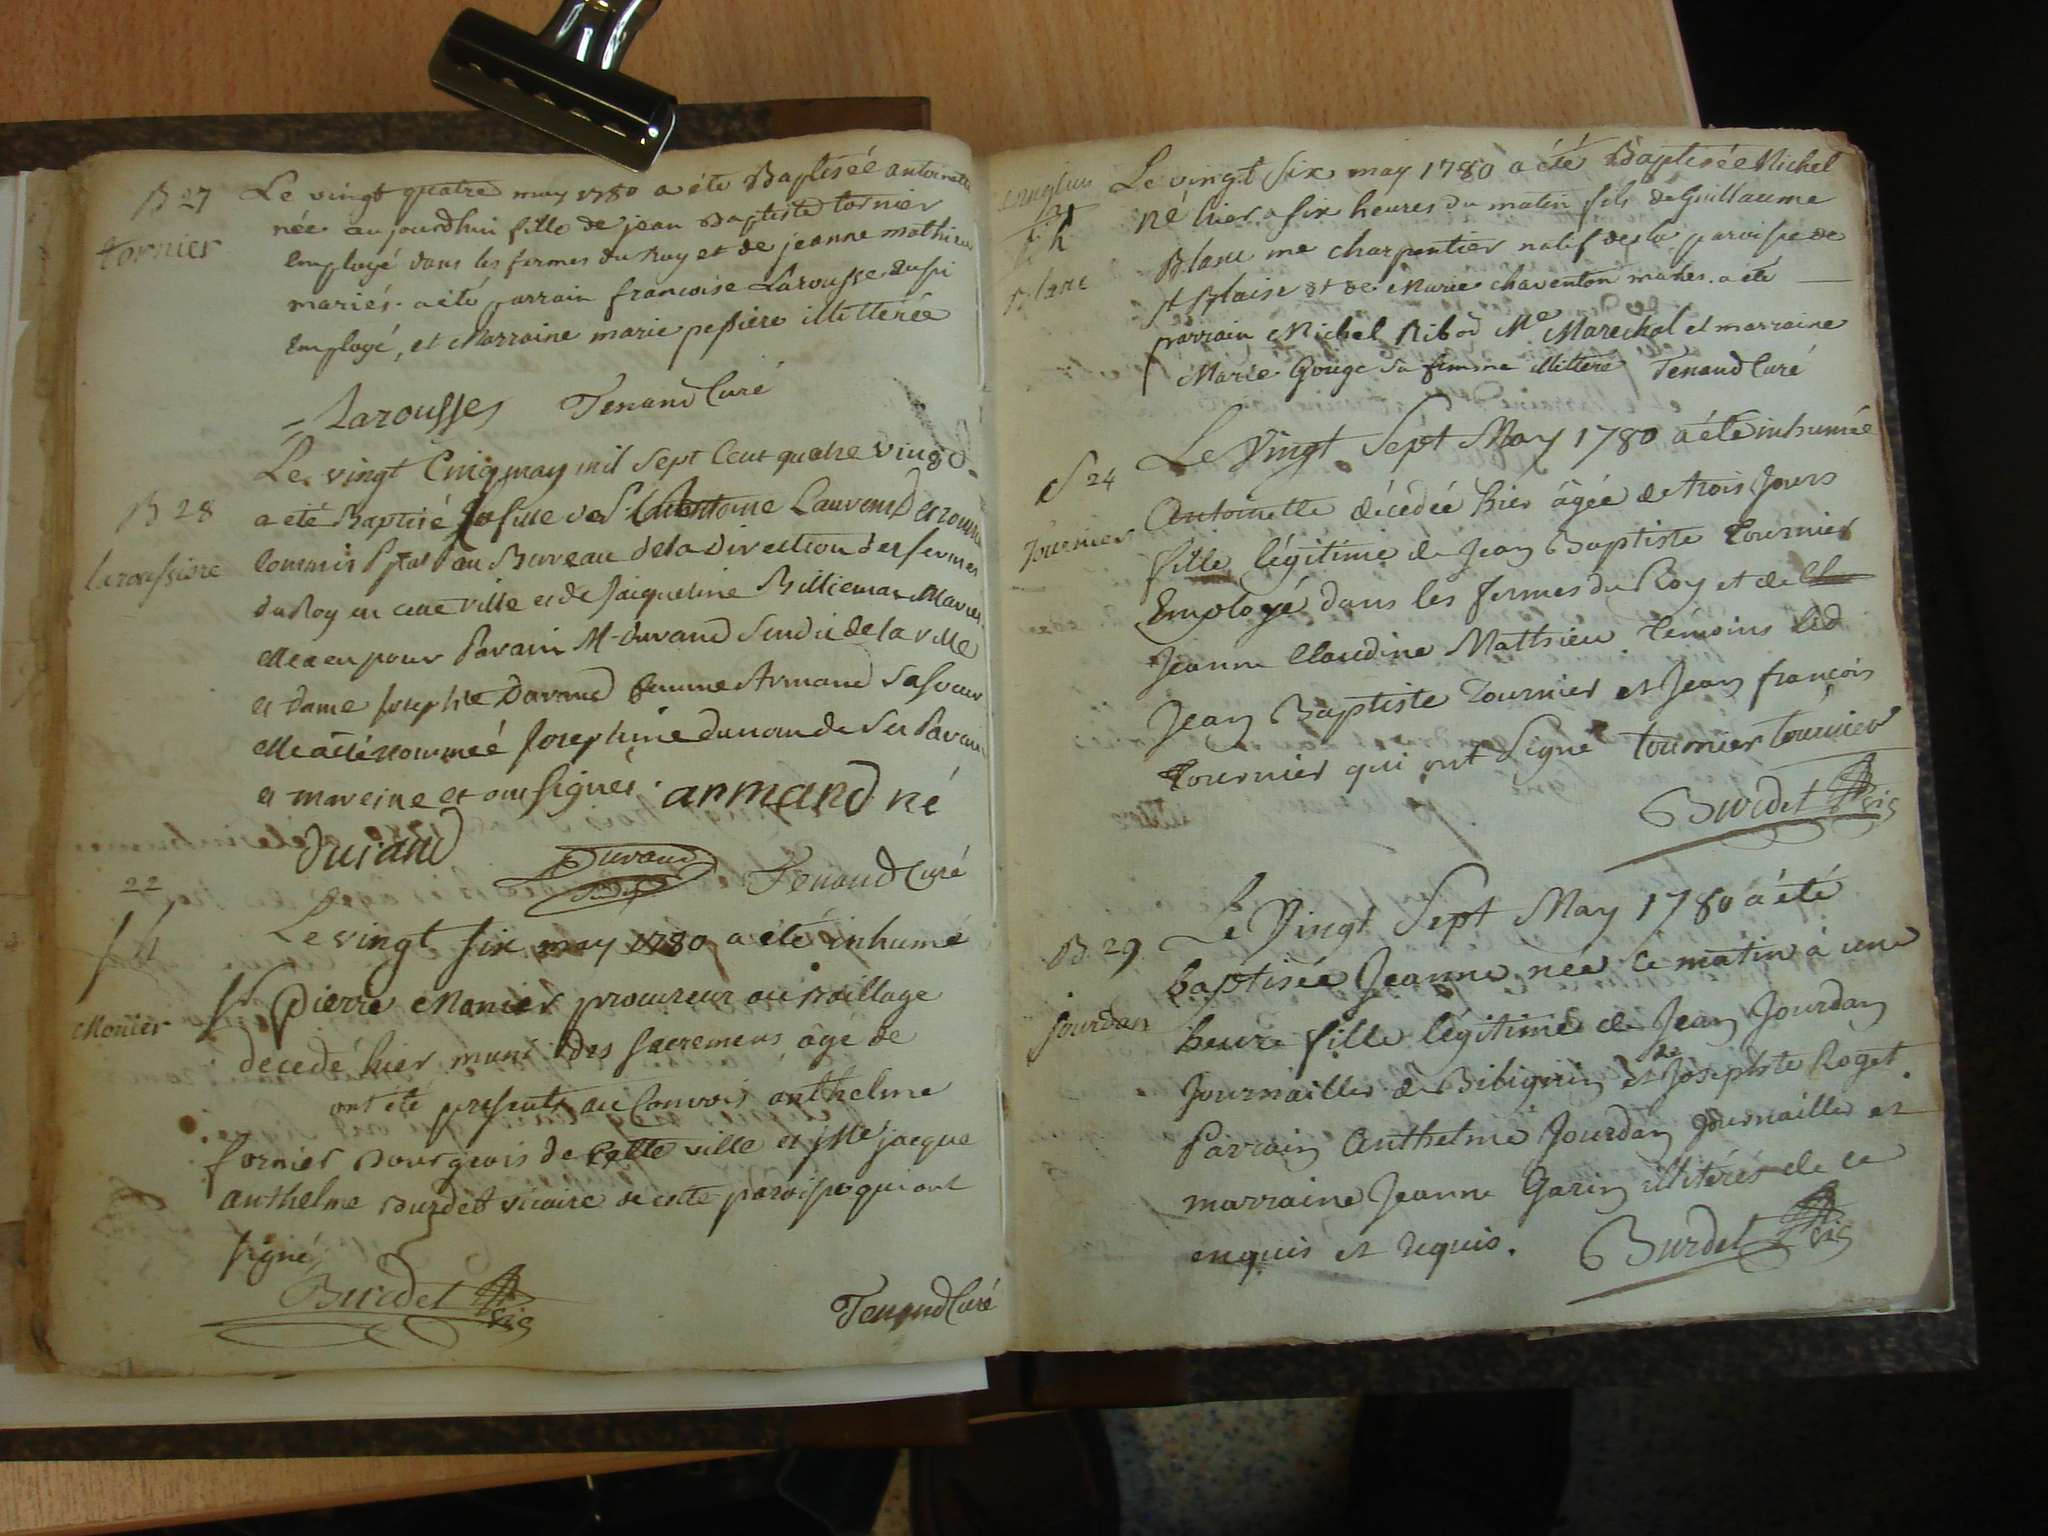 B 27
tornier
Le vingt quatre may 1780 a été Baptisée antoinette
née aujourdhui fille de jean Baptiste tornier
Employé dans les fermes du Roy et de jeanne mathieu
mariés. a été parrain francoise Larousse aussi
Employé, et Marraine marie pessiere illettérée
Larousses Tenand Curé
B 28
Le vingt Cinq may mil sept Cent quatre vingt
a été Baptisé fille de Sr Antoine Laurend
Commis au Bureau de la Direction des fermes
du Roy en cette ville et de Jaiqueline Billiemas Mariés
elle a eu pour Parain Mr durand Sindic de la ville
et dame Josephte Durand femme Armand Sa Soeur
elle a été nommeé Josephine du nom de Ses Parain
et mareine et ont signés. armand né
durand Durand Sindic Tenand Curé
22
Monier
Le vingt six may 1780 a été inhumé
Sr Pierre Monier procureur au Baillage
decedé hier muni des sacremens âgé de
ont été presents au Convois anthelme
fornier Bourgeois de cette ville et Me jacque
anthelme Burdet vicaire de cette paroisse qui ont
signé
Burdet vic
Tenand Curé
Blanc
Le vingt six may 1780 a été Baptisée Michel
né hier a six heures du matin fils de Guillaume
Blanc me charpentier natif de la paroisse de
st Blaise et de Marie chaventon mariés. a été
parrain Michel Ribod Me Marechal et marraine
Marie Gouge sa femme illittere Tenand Curé
S 24
Tournier
Le Vingt Sept May 1780 a été inhumée
Antoinette décédée hier âgée de trois Jours
fille légitime de Jean Baptiste Tournier
Employé dans les fermes du Roy et de
Jeanne Claudine Mathieu Témoins led
Jean Baptiste Tournier et Jean françois
Tournier qui ont Signé tournier tournier
Burdet vic
B. 29
Jourdan
Le Vingt Sept May 1780 a été
baptisée Jeanne née ce matin à une
heure fille légitime de Jean Jourdan
Journaillier de Bibignin et de Josephte Roget.
Parrain Anthelme Jourdan Journaillier et
marraine Jeanne Garin illitérés de ce
enquis et requis. Burdet vic